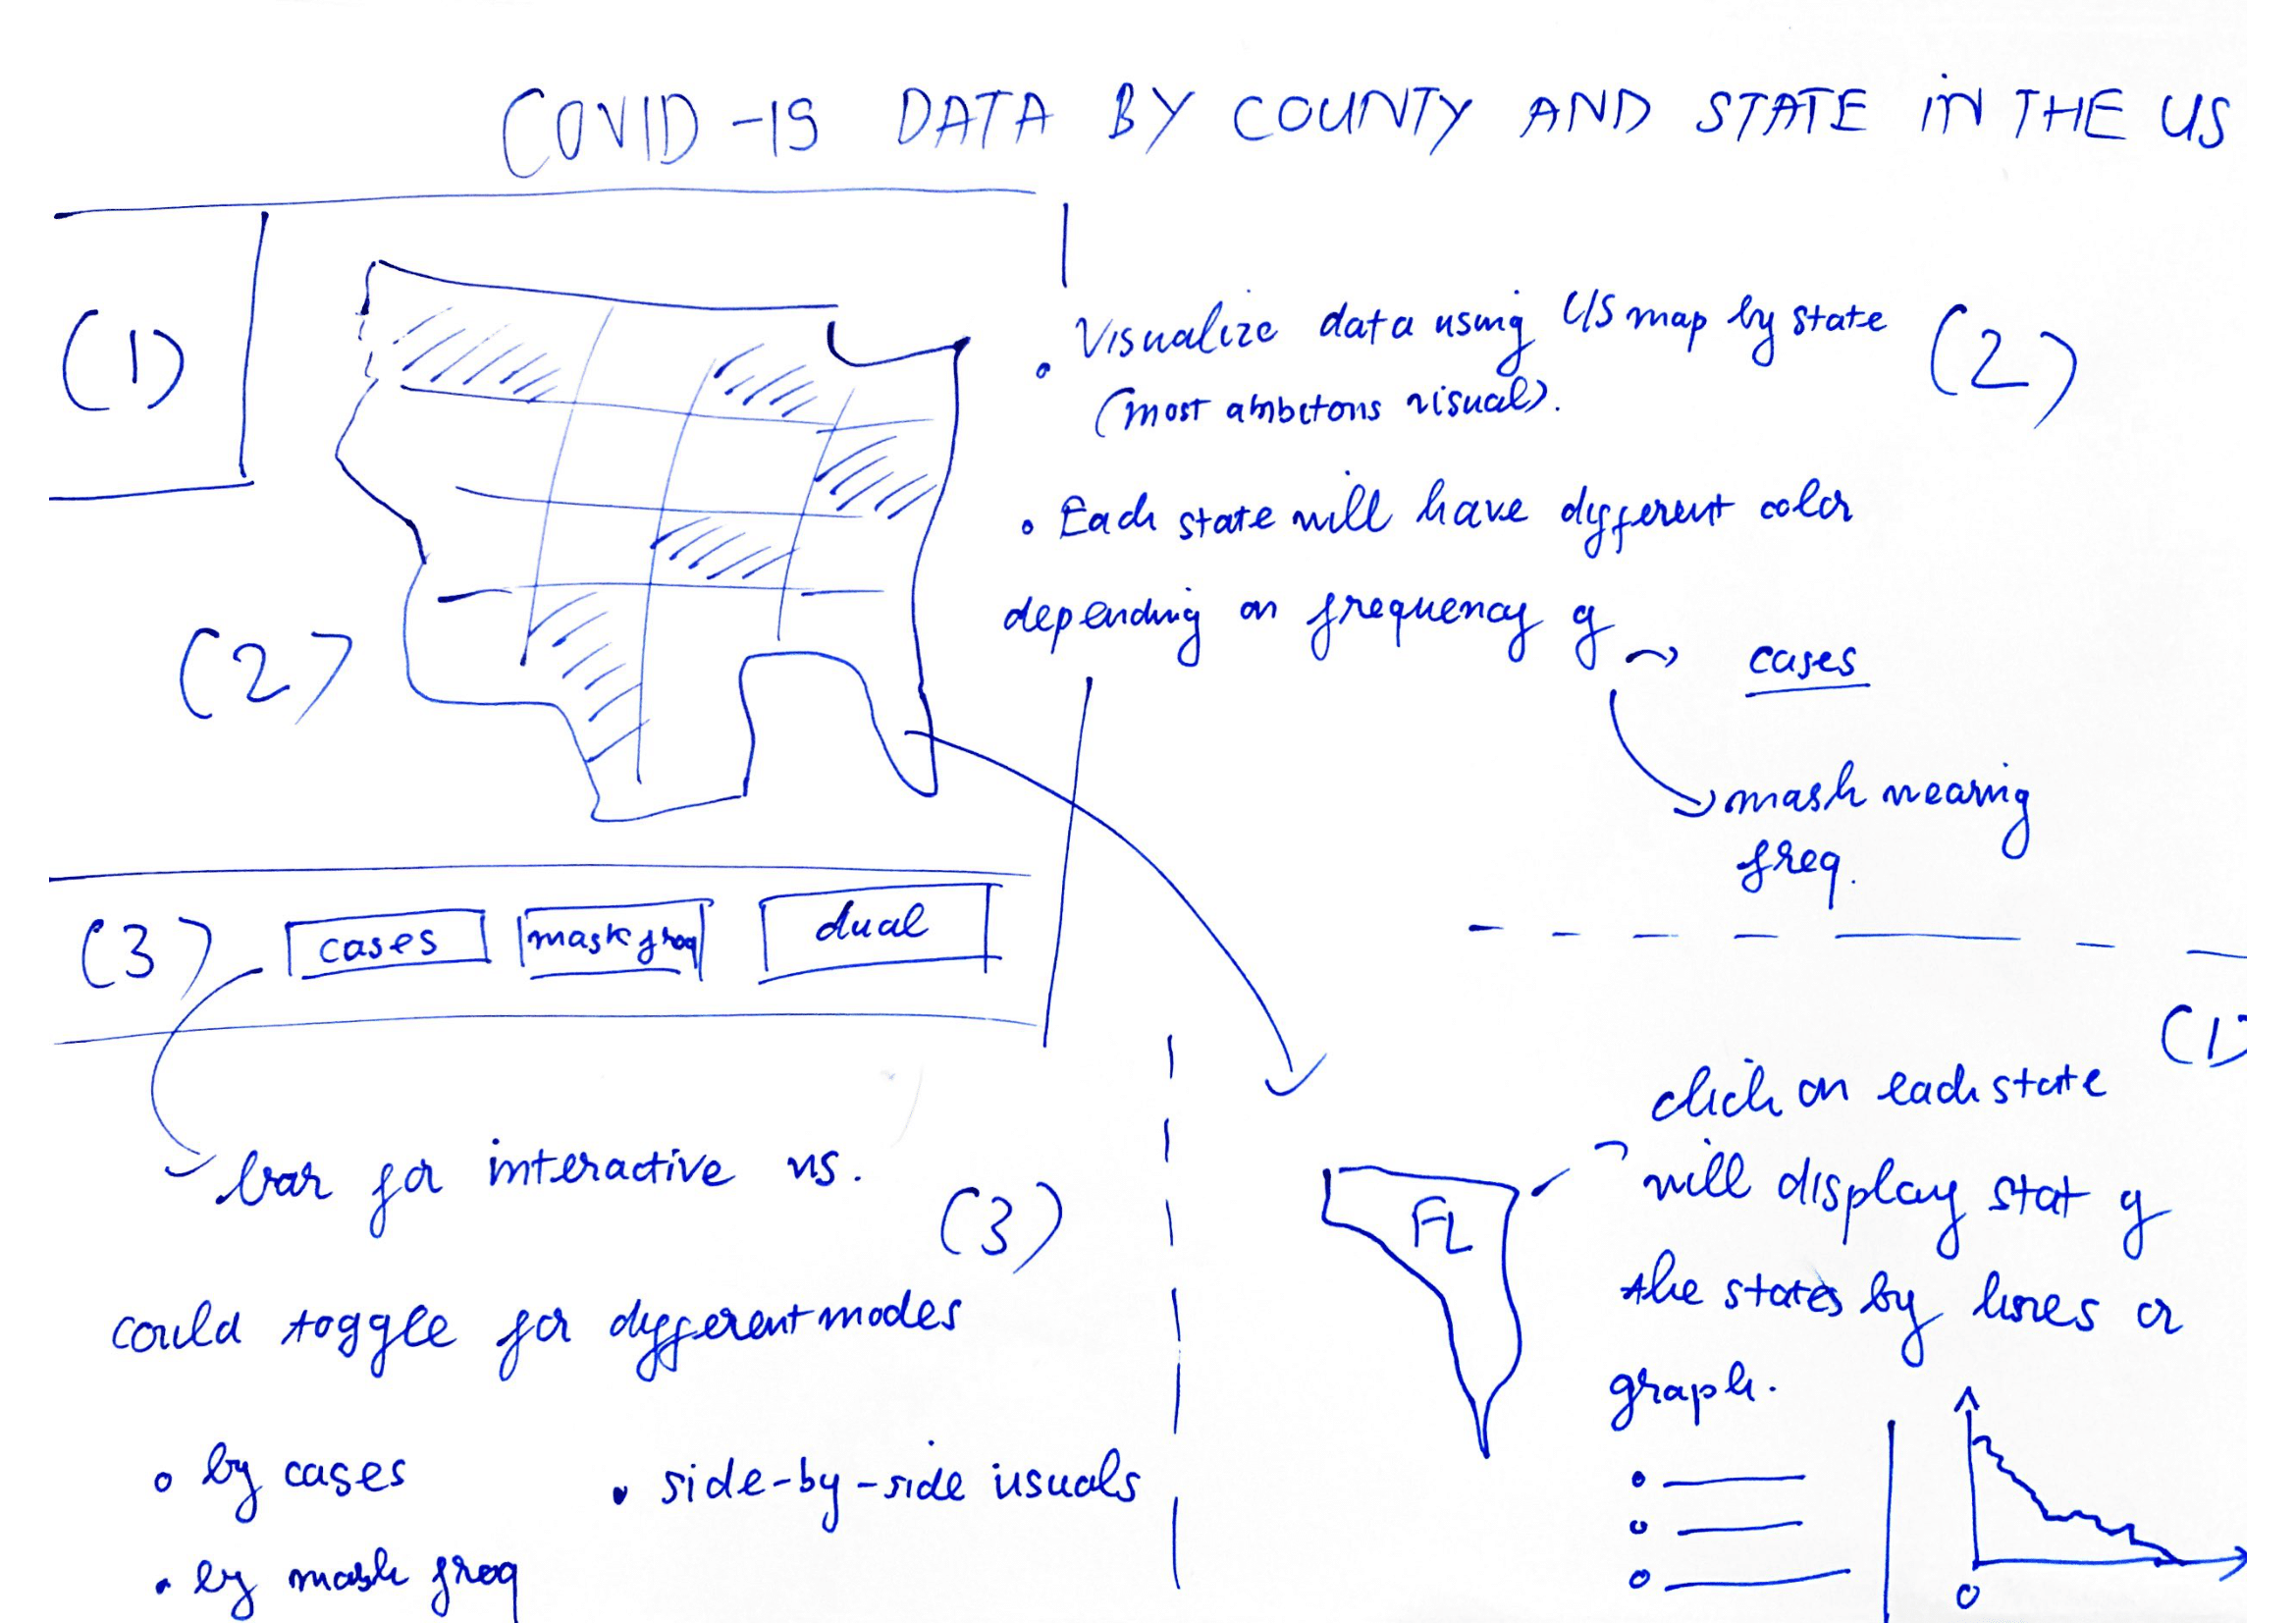 COVID-19 DATA BY COUNTY AND STATE IN THE US
(1)
• Visualize data using US map by state (2)
(most ambitons visual).
• Each state will have different color
depending on frequency of → cases
mask wearing
freq.
(2)
(3) cases mask freq dual
bar for interactive vis.
(3)
could toggle for different modes
• by cases • side-by-side visuals
• by mask freq
(1)
click on each state
will display stat of
the states by lines or
graph.
FL
0